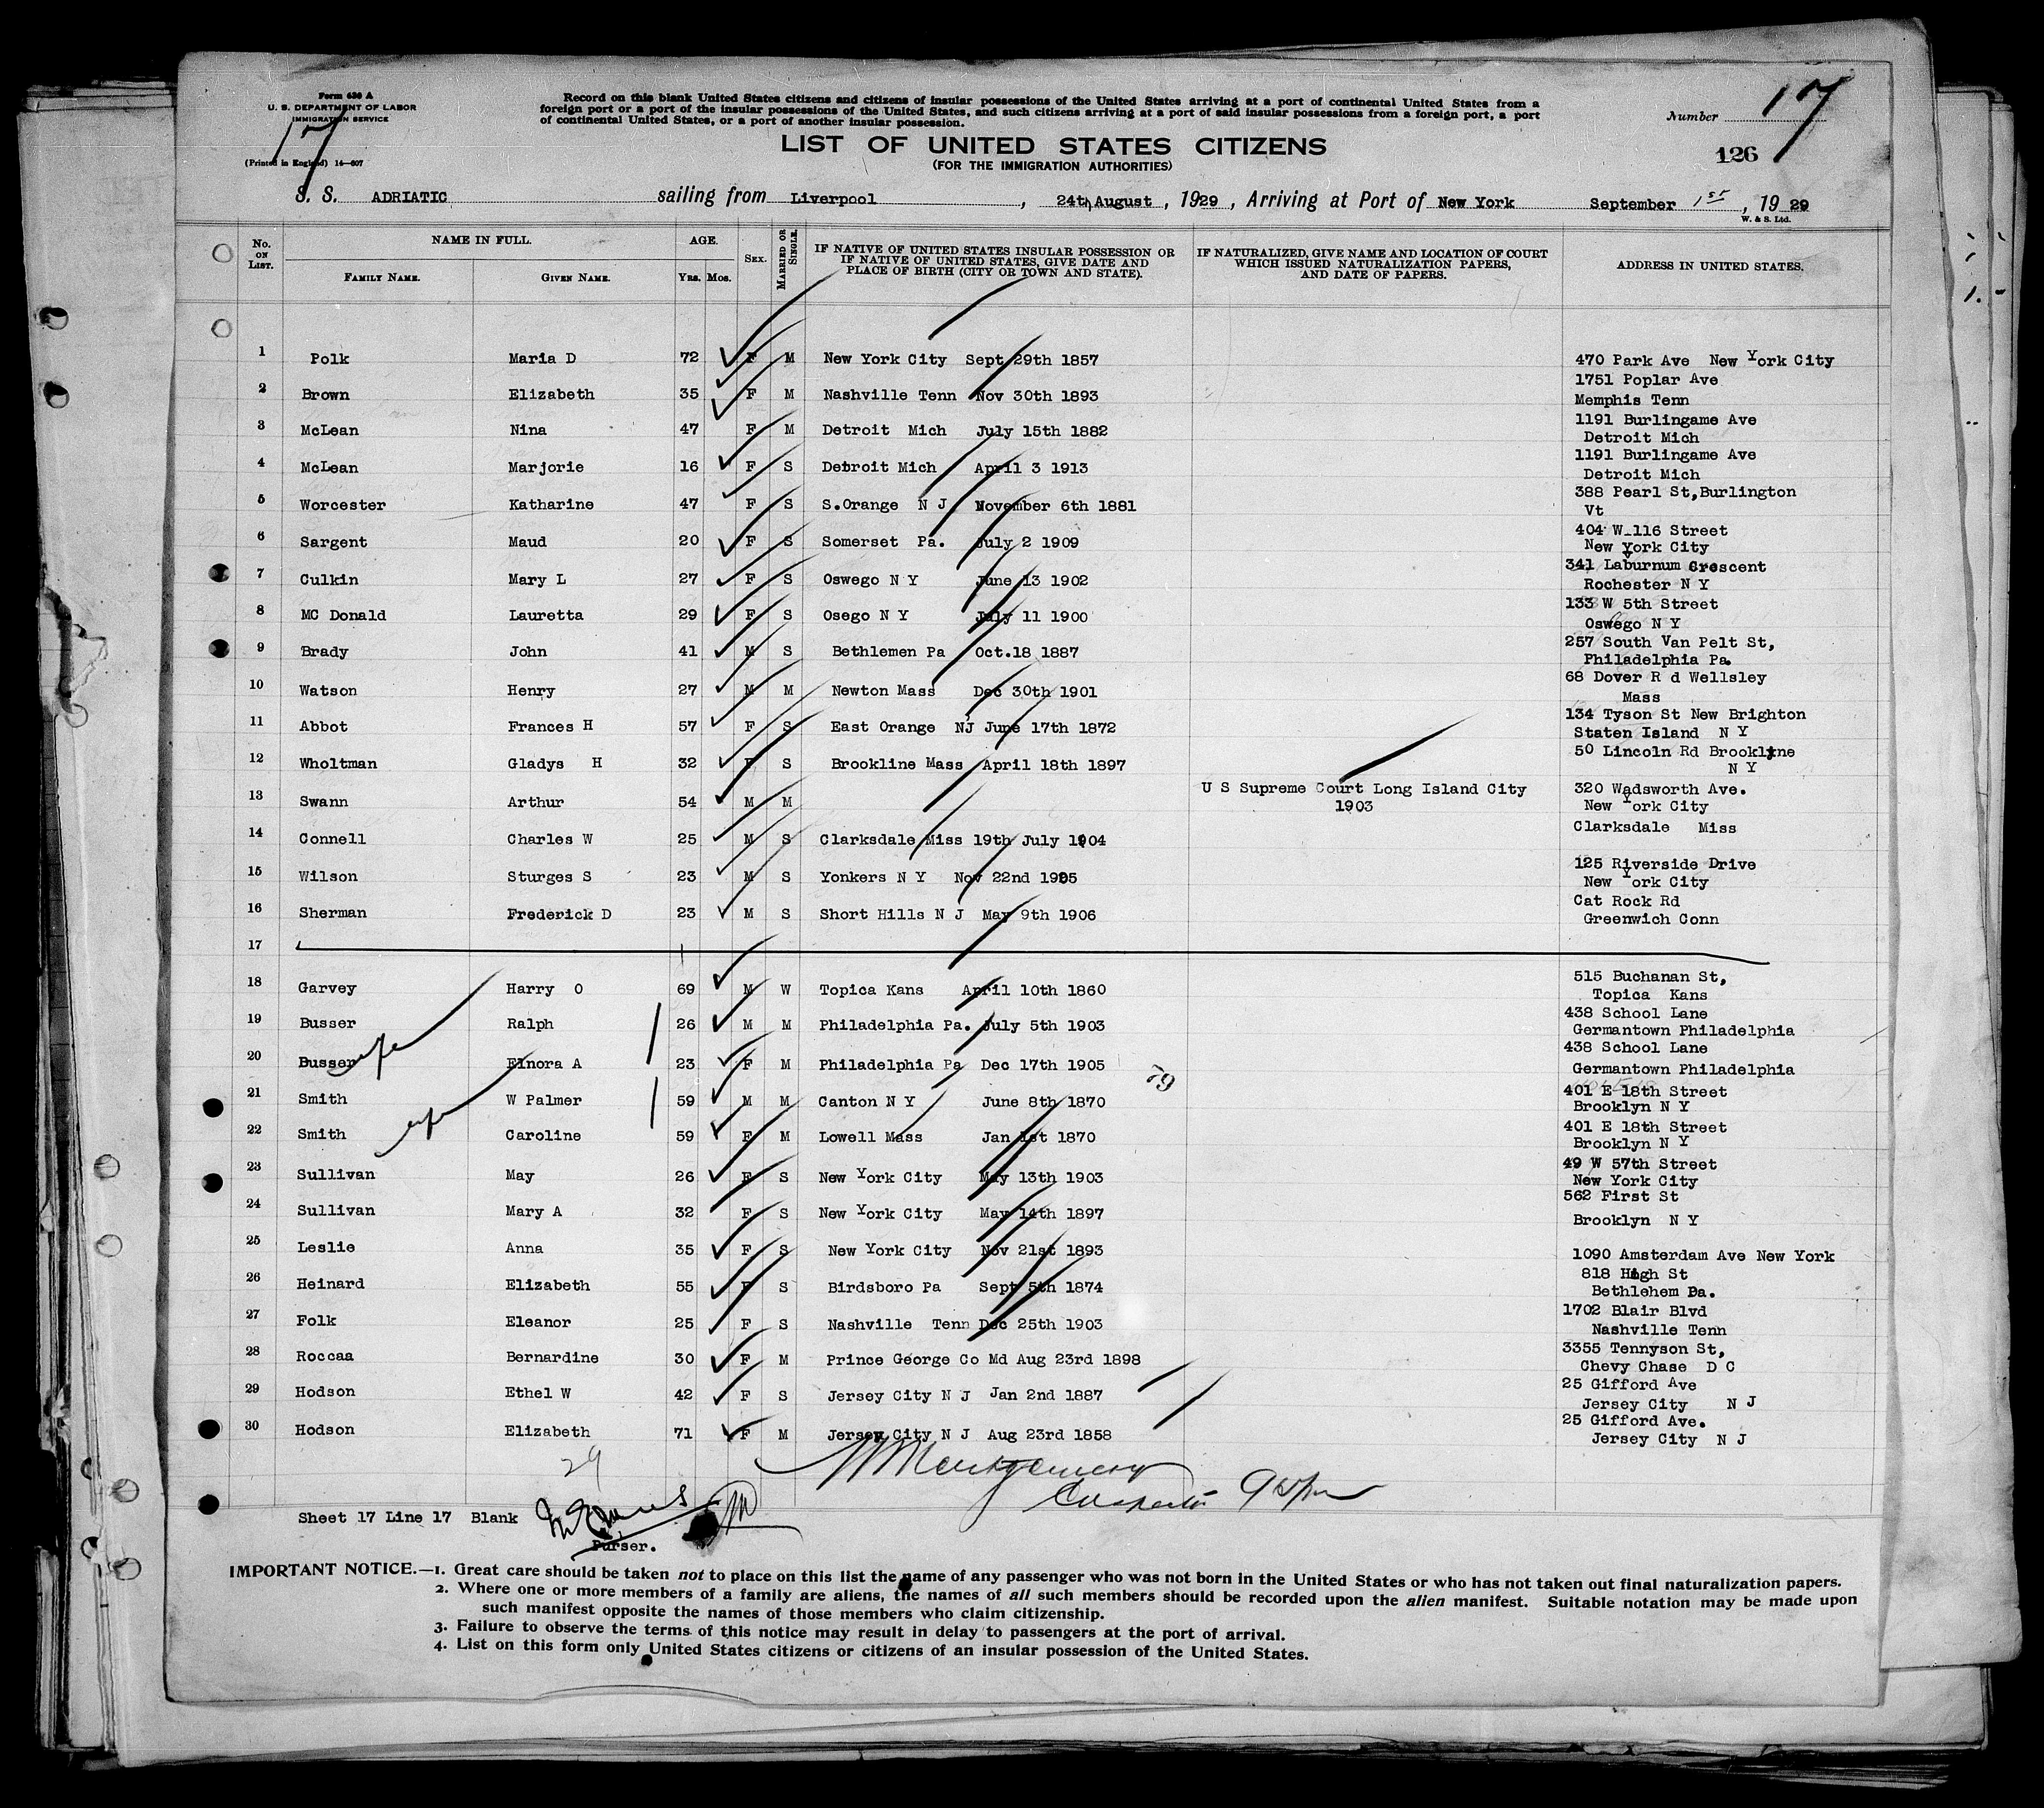 Form 630 A
U. S. DEPARTMENT OF LABOR
IMMIGRATION SERVICE
(Printed in England) 14—607
17
Record on this blank United States citizens and citizens of insular possessions of the United States arriving at a port of continental United States from a
foreign port or a port of the insular possessions of the United States, and such citizens arriving at a port of said insular possessions from a foreign port, a port
of continental United States, or a port of another insular possession.
Number 17
LIST OF UNITED STATES CITIZENS
(FOR THE IMMIGRATION AUTHORITIES)
126
S. S. ADRIATIC sailing from Liverpool , 24th August , 1929 , Arriving at Port of New York September 1st , 19 29
W. & S. Ltd.
No. ON LIST. NAME IN FULL. FAMILY NAME. GIVEN NAME. AGE. YRS. MOS. SEX. MARRIED OR SINGLE. IF NATIVE OF UNITED STATES INSULAR POSSESSION OR IF NATIVE OF UNITED STATES, GIVE DATE AND PLACE OF BIRTH (CITY OR TOWN AND STATE). IF NATURALIZED, GIVE NAME AND LOCATION OF COURT WHICH ISSUED NATURALIZATION PAPERS, AND DATE OF PAPERS. ADDRESS IN UNITED STATES.
1 Polk Maria D 72 F M New York City Sept 29th 1857 470 Park Ave New York City
2 Brown Elizabeth 35 F M Nashville Tenn Nov 30th 1893 1751 Poplar Ave
Memphis Tenn
3 McLean Nina 47 F M Detroit Mich July 15th 1882 1191 Burlingame Ave
Detroit Mich
4 McLean Marjorie 16 F S Detroit Mich April 3 1913 1191 Burlingame Ave
Detroit Mich
5 Worcester Katharine 47 F S S.Orange N J November 6th 1881 388 Pearl St,Burlington
Vt
6 Sargent Maud 20 F S Somerset Pa. July 2 1909 404 W 116 Street
New York City
7 Culkin Mary L 27 F S Oswego N Y June 13 1902 341 Laburnum Crescent
Rochester N Y
8 MC Donald Lauretta 29 F S Osego N Y July 11 1900 133 W 5th Street
Oswego N Y
9 Brady John 41 M S Bethlemen Pa Oct.18 1887 257 South Van Pelt St,
Philadelphia Pa.
10 Watson Henry 27 M M Newton Mass Dec 30th 1901 68 Dover R d Wellsley
Mass
11 Abbot Frances H 57 F S East Orange NJ June 17th 1872 134 Tyson St New Brighton
Staten Island N Y
12 Wholtman Gladys H 32 F S Brookline Mass April 18th 1897 50 Lincoln Rd Brooklyne
N Y
13 Swann Arthur 54 M M U S Supreme Court Long Island City 320 Wadsworth Ave.
1903 New York City
14 Connell Charles W 25 M S Clarksdale Miss 19th July 1904 Clarksdale Miss
15 Wilson Sturges S 23 M S Yonkers N Y Nov 22nd 1905 125 Riverside Drive
New York City
16 Sherman Frederick D 23 M S Short Hills N J May 9th 1906 Cat Rock Rd
Greenwich Conn
17
18 Garvey Harry O 69 M W Topica Kans April 10th 1860 515 Buchanan St,
Topica Kans
19 Busser Ralph 26 M M Philadelphia Pa. July 5th 1903 438 School Lane
Germantown Philadelphia
20 Busser wife Elnora A 23 F M Philadelphia Pa Dec 17th 1905 79 438 School Lane
Germantown Philadelphia
21 Smith W Palmer 59 M M Canton N Y June 8th 1870 401 E 18th Street
Brooklyn N Y
22 Smith wife Caroline 59 F M Lowell Mass Jan 1st 1870 401 E 18th Street
Brooklyn N Y
23 Sullivan May 26 F S New York City May 13th 1903 49 W 57th Street
New York City
24 Sullivan Mary A 32 F S New York City May 14th 1897 562 First St
Brooklyn N Y
25 Leslie Anna 35 F S New York City Nov 21st 1893 1090 Amsterdam Ave New York
26 Heinard Elizabeth 55 F S Birdsboro Pa Sept 5th 1874 818 High St
Bethlehem Pa.
27 Folk Eleanor 25 F S Nashville Tenn Dec 25th 1903 1702 Blair Blvd
Nashville Tenn
28 Roccaa Bernardine 30 F M Prince George Co Md Aug 23rd 1898 3355 Tennyson St,
Chevy Chase D C
29 Hodson Ethel W 42 F S Jersey City N J Jan 2nd 1887 25 Gifford Ave
Jersey City N J
30 Hodson Elizabeth 71 F M Jersey City N J Aug 23rd 1858 25 Gifford Ave.
Jersey City N J
29
Montgomery
Sheet 17 Line 17 Blank
Purser.
IMPORTANT NOTICE.—1. Great care should be taken not to place on this list the name of any passenger who was not born in the United States or who has not taken out final naturalization papers.
2. Where one or more members of a family are aliens, the names of all such members should be recorded upon the alien manifest. Suitable notation may be made upon
such manifest opposite the names of those members who claim citizenship.
3. Failure to observe the terms of this notice may result in delay to passengers at the port of arrival.
4. List on this form only United States citizens or citizens of an insular possession of the United States.